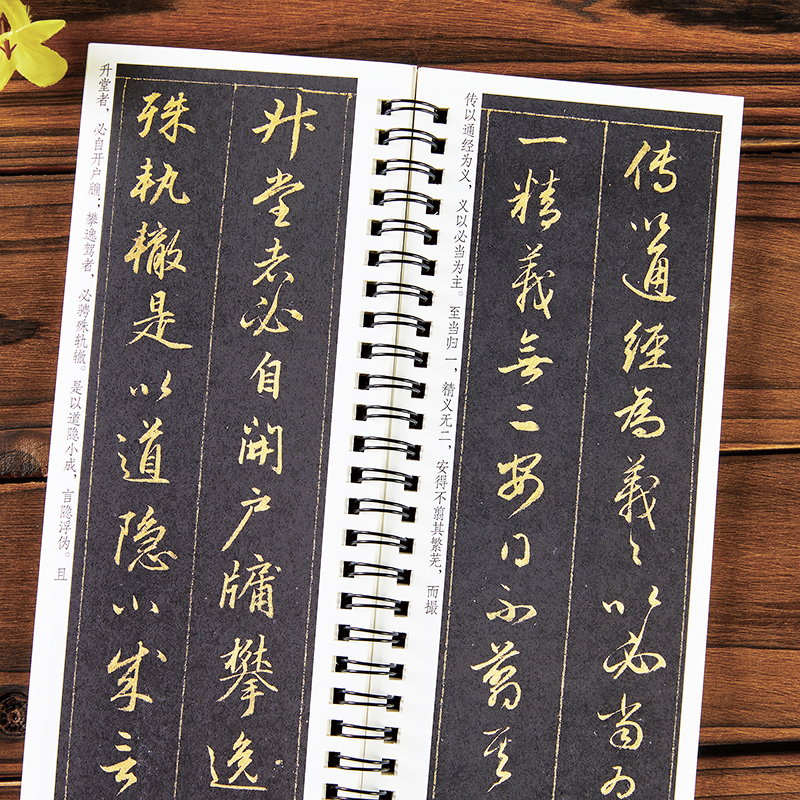 升堂者，必自开户牖；攀逸驾者，必骋殊轨辙。是以道隐小成，言隐浮伪。且
升堂者必自開户牖攀逸
殊軌轍是以道隱小成言
传以通经为义，义以必当为主。至当归一，精义无二，安得不翦其繁芜，而撮
傳以通經為義々以必當為
一精義無二安得不翦其